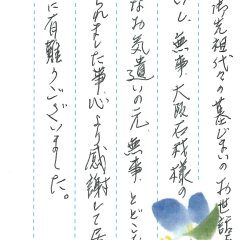 御先祖代々の墓じまいのお世話
いし、無事、大阪石材様の
なお気遣いの元、無事とどこ
られました事心より感謝して居
に有難うございました。